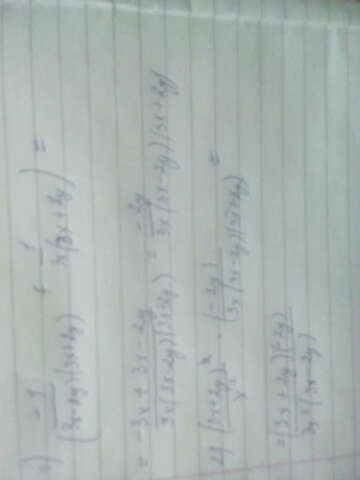 1) (-1/(3x-2y)(3x+2y) + 1/3x(3x+2y)) =
= -3x+3x-2y/3x(3x-2y)(3x+2y) = -2y/3x(3x-2y)(3x+2y)
2) (3x+2y)²/x² · (-2y)/3x(3x-2y)(3x+2y) =
= (3x+2y)(-2y)/(3x-2y)